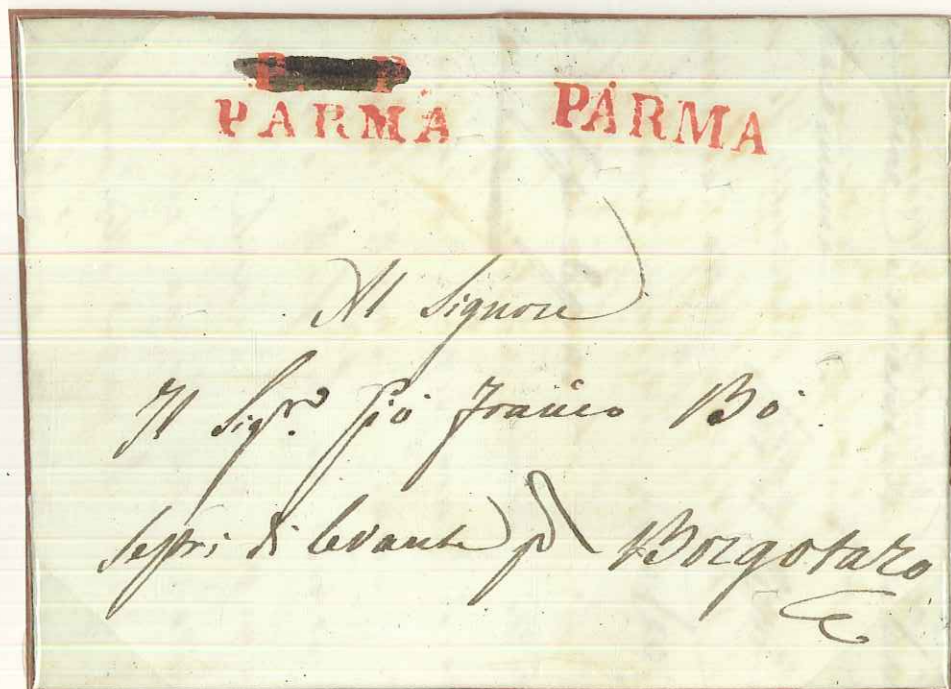 P. P.
PARMA PARMA
Al Signore
Il Sig.r Gio Franco Bo
Sestri di Levante p Borgotaro